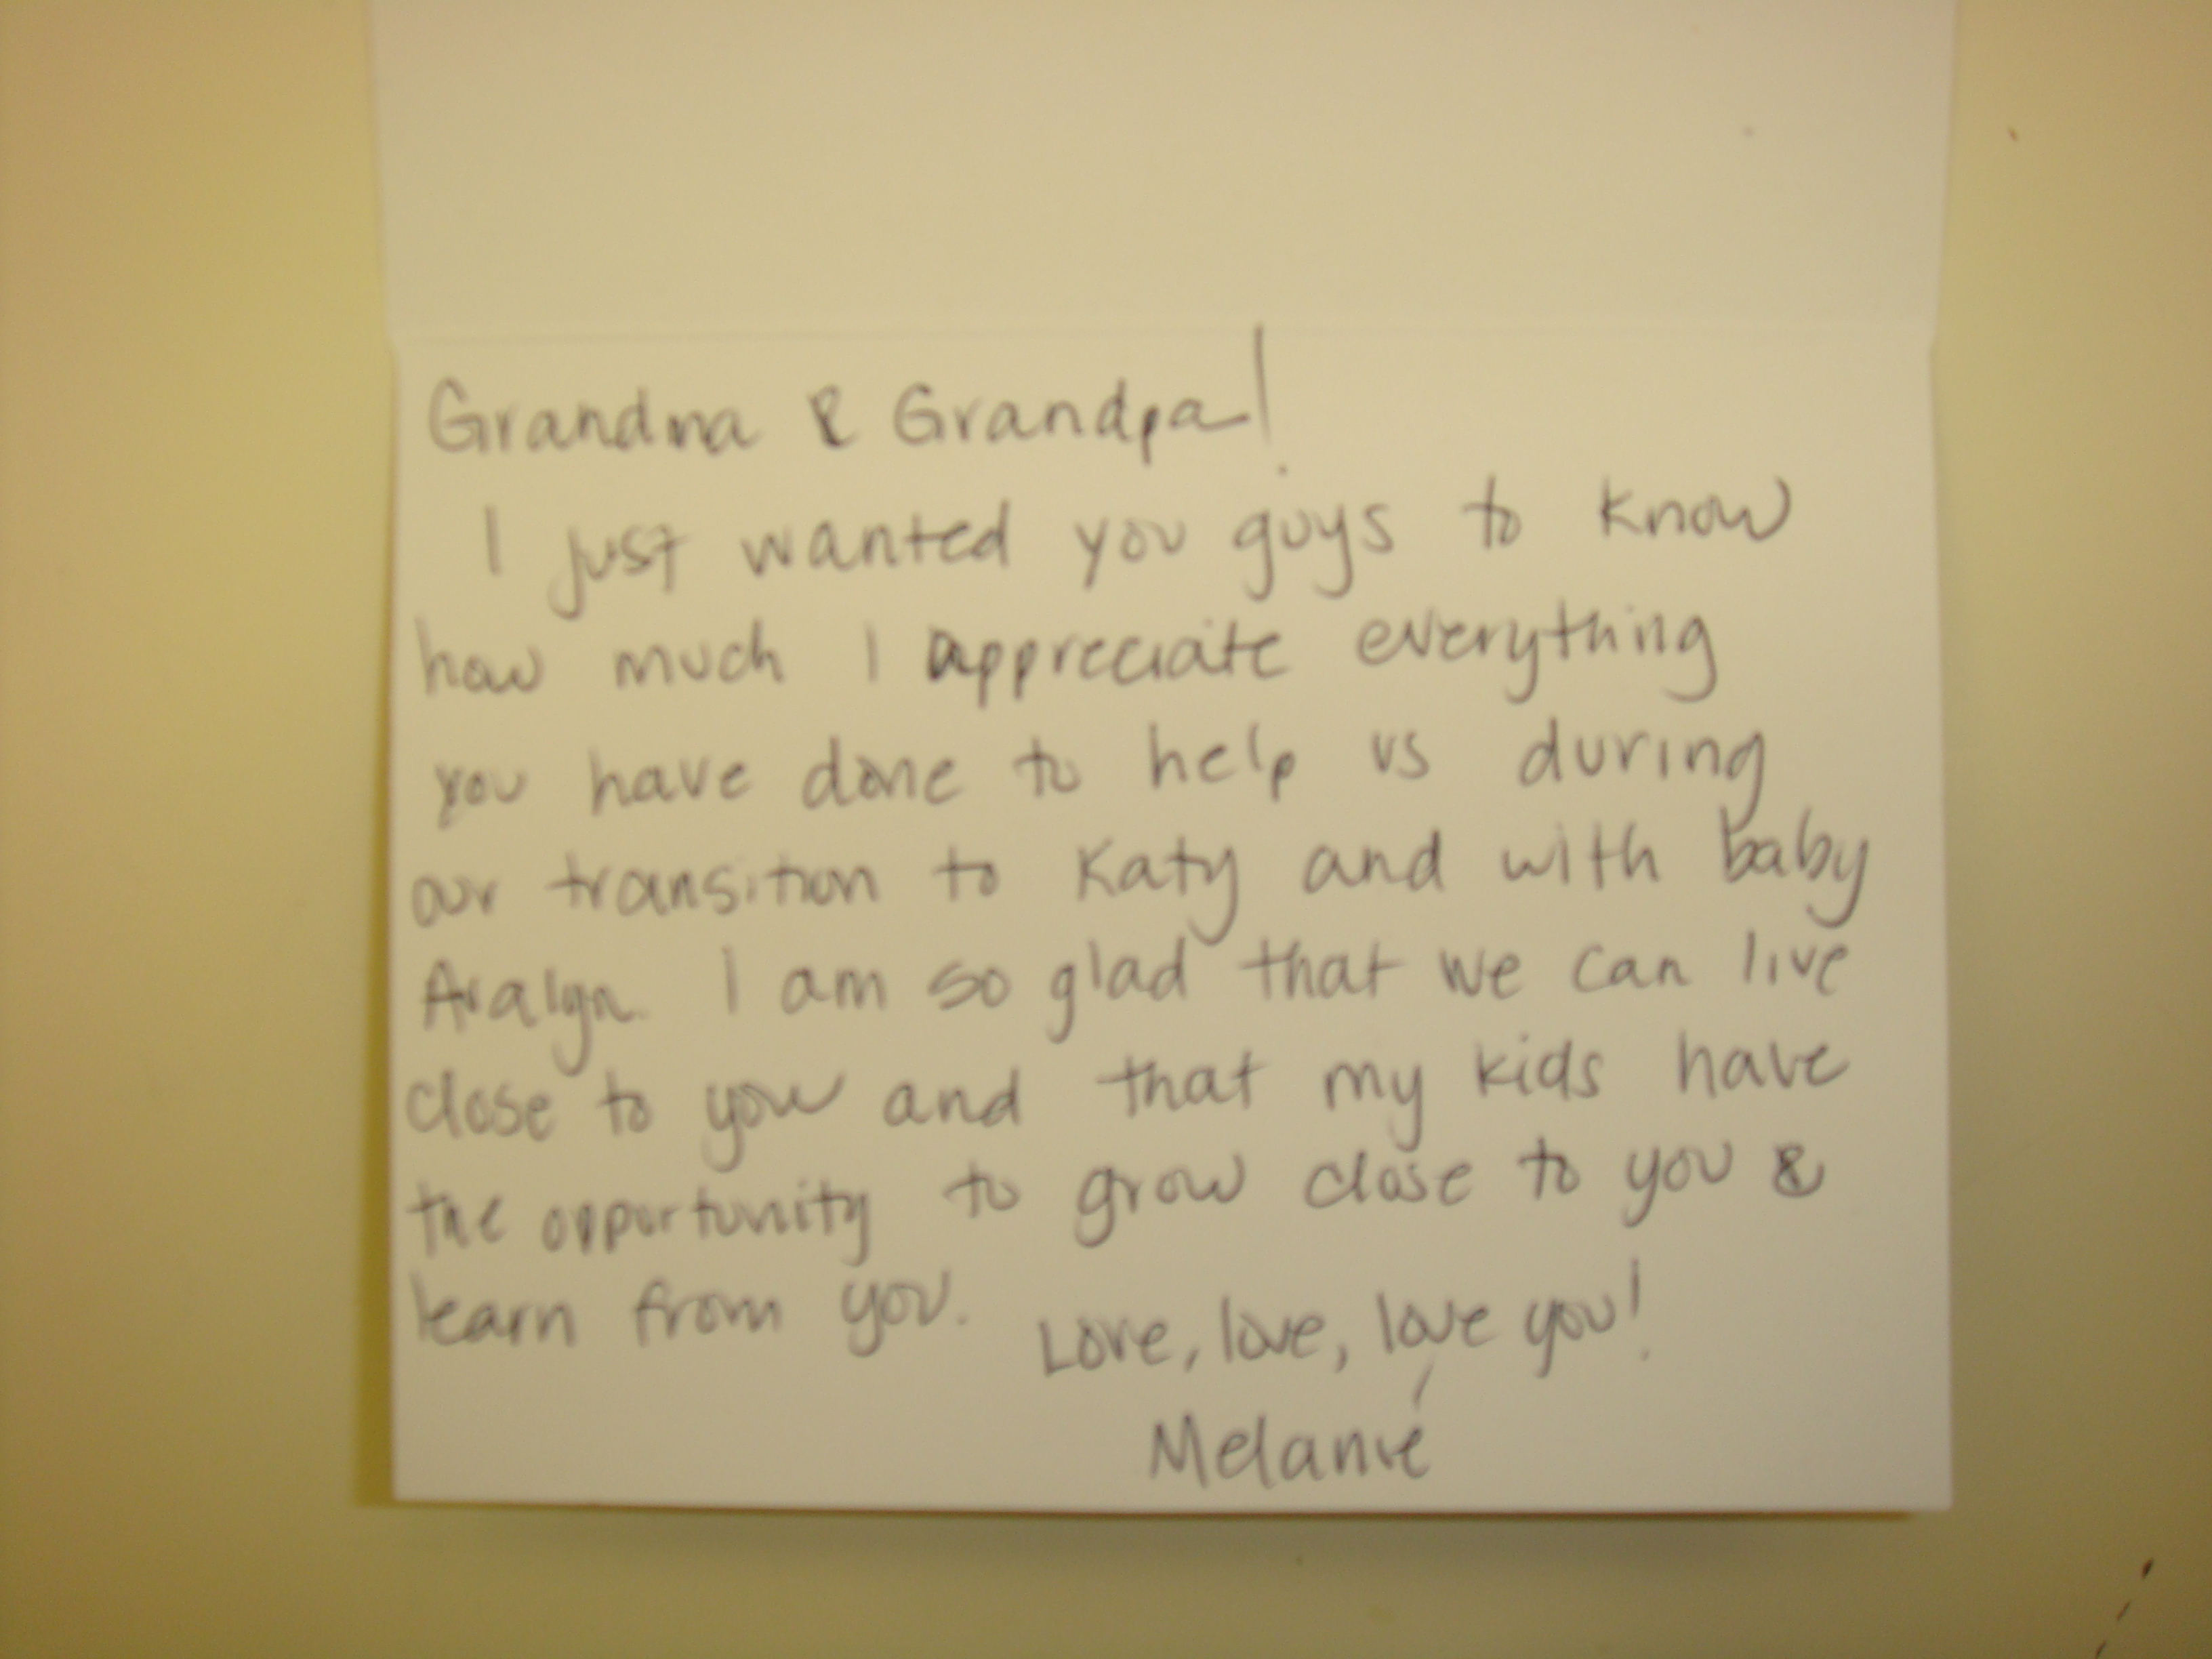 Grandma & Grandpa!
I just wanted you guys to know
how much I appreciate everything
you have done to help us during
our transition to Katy and with baby
Aralyn. I am so glad that we can live
close to you and that my kids have
the opportunity to grow close to you &
learn from you. Love, love, love you!
Melanie